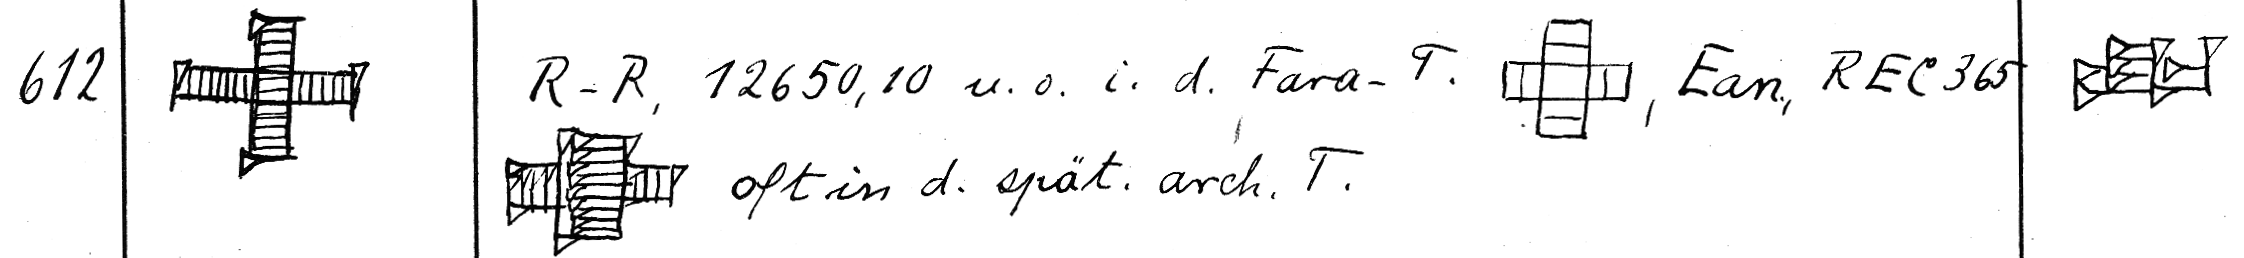 612 R-R, 12650,10 u. o. i. d. Fara-T. , Ean, REC 365
oft in d. spät. arch. T.